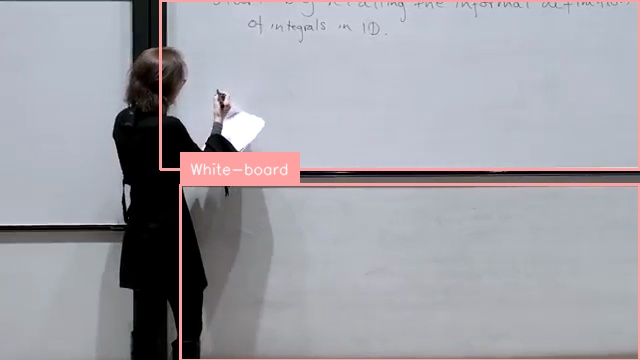 recalling the informal definition
of integrals in 1D.
White-board